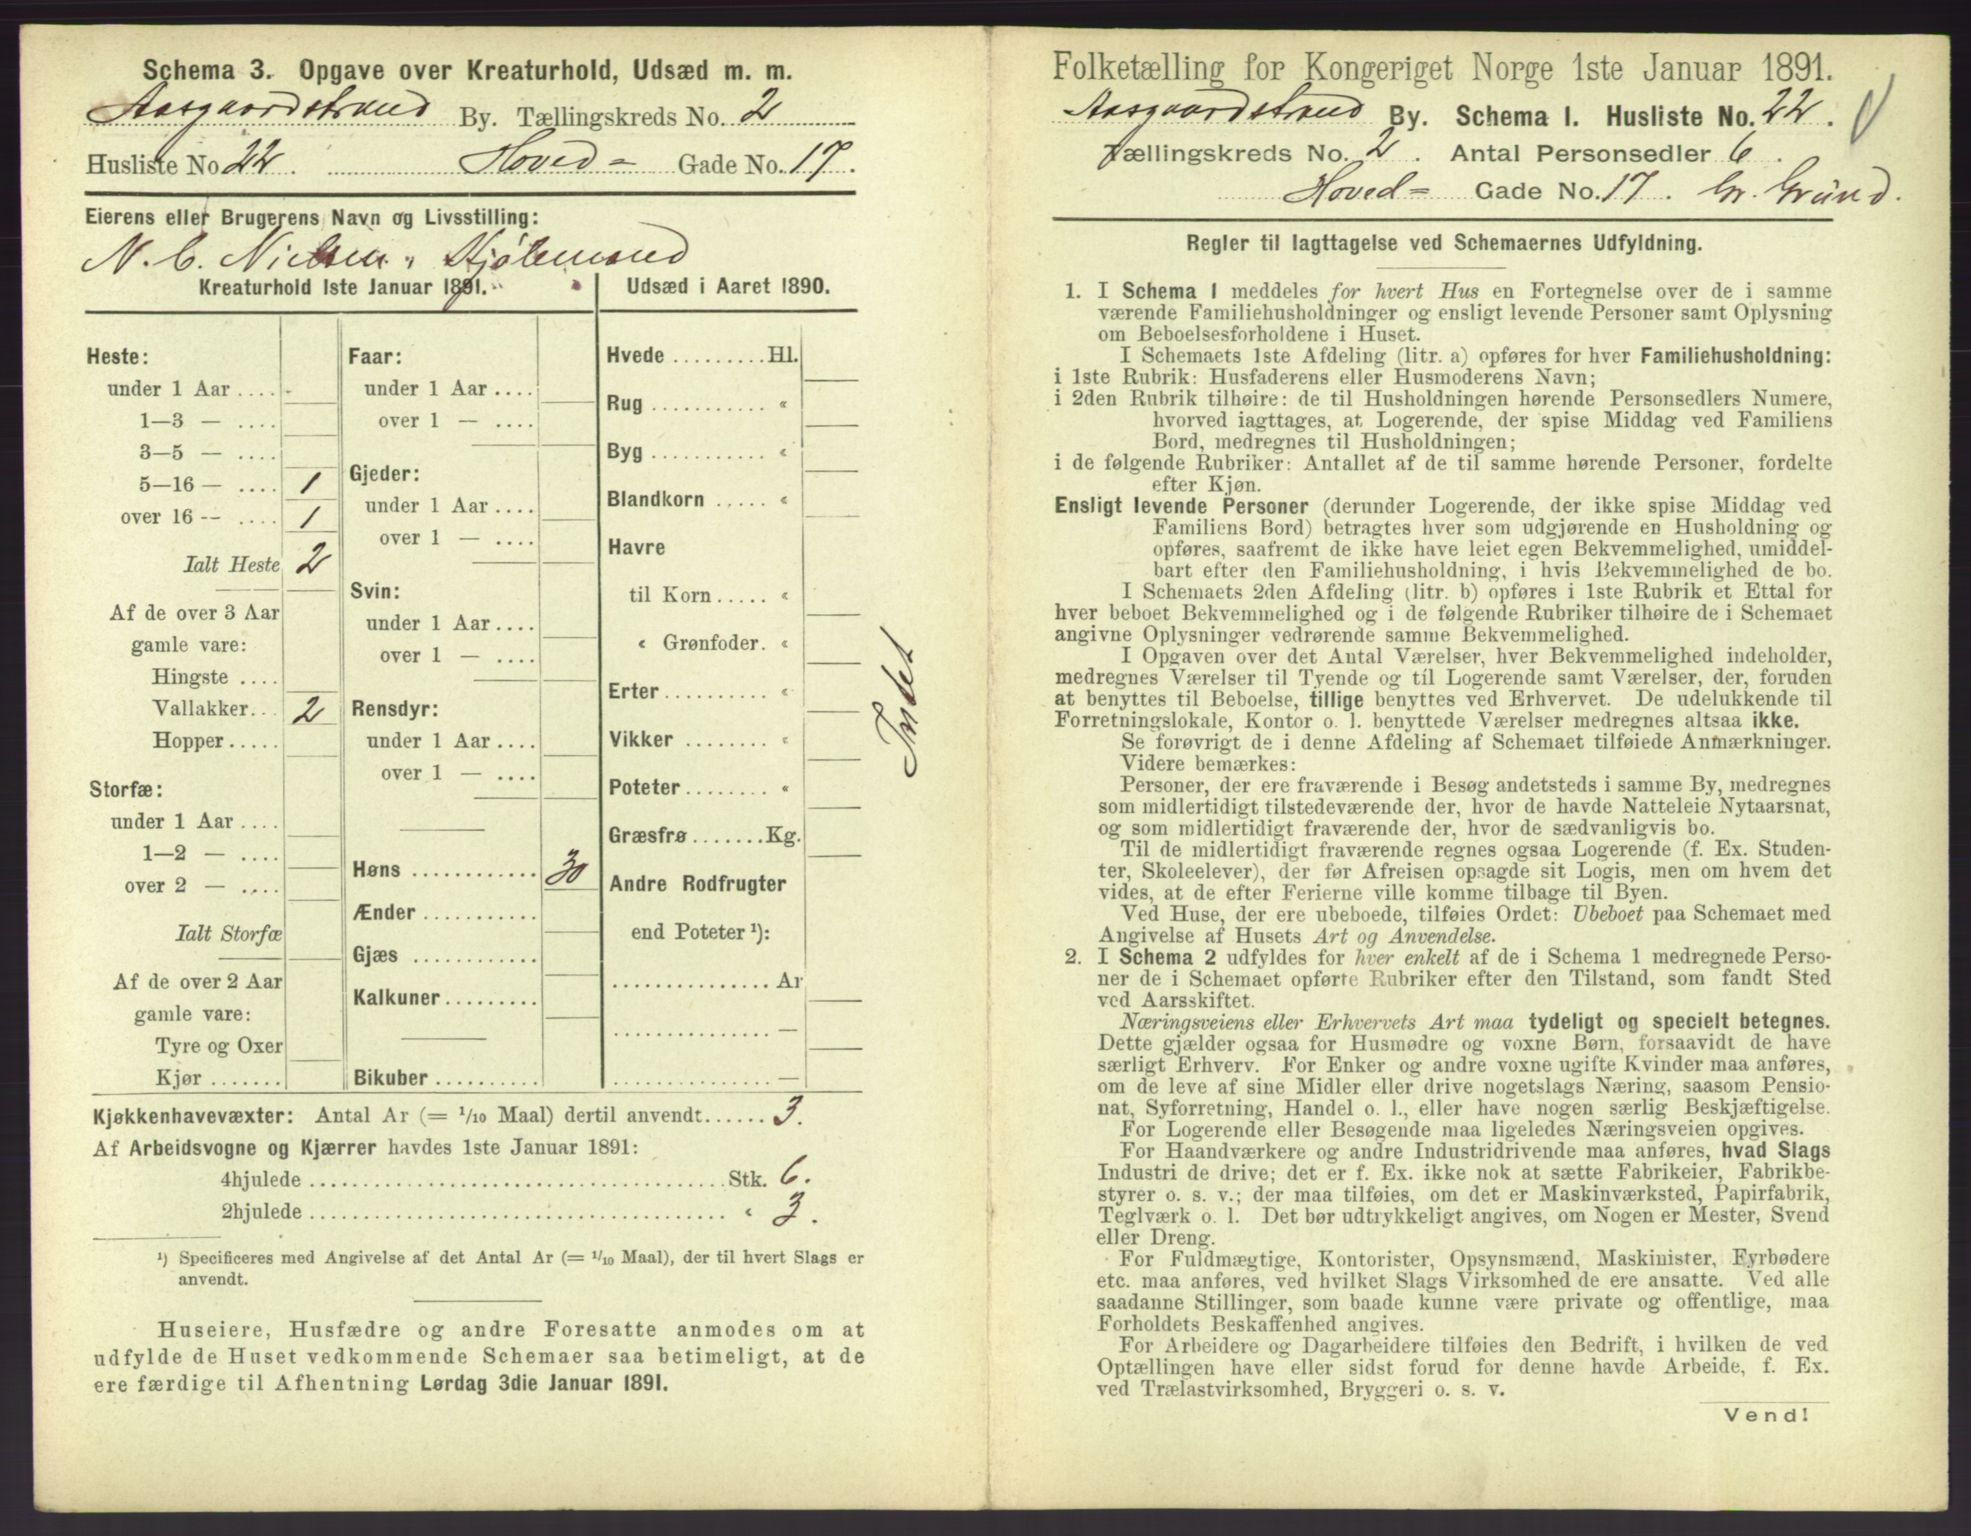 Schema 3. Opgave over Kreaturhold, Udsæd m. m.
Aasgaardstrand By. Tællingskreds No. 2
Husliste No 22. Hoved= Gade No. 17.
Eierens eller Brugerens Navn og Livsstilling:
N. C. Nielsen, Kjøbmand
Kreaturhold 1ste Januar 1891.
Heste:
under 1 Aar ....
1—3 — ....
3—5 — ....
5—16 — .... 1
over 16 -- .... 1
Ialt Heste 2
Af de over 3 Aar
gamle vare:
Hingste ....
Vallakker.. 2
Hopper.....
Storfæ:
under 1 Aar ....
1—2 — ....
over 2 — ....
Ialt Storfæ
Af de over 2 Aar
gamle vare:
Tyre og Oxer
Kjør .......
Faar:
under 1 Aar ....
over 1 — ....
Gjeder:
under 1 Aar ....
over 1 — ....
Svin:
under 1 Aar ....
over 1 — ....
Rensdyr:
under 1 Aar ....
over 1 — ....
Høns ............ 30
Ænder ...........
Gjæs ............
Kalkuner .........
Bikuber ..........
Udsæd i Aaret 1890.
Hvede ......... Hl.
Rug ........... «
Byg ........... «
Blandkorn ..... «
Havre
til Korn ..... «
« Grønfoder. «
Erter .......... «
Vikker ........ «
Poteter ........ «
Græsfrø ....... Kg.
Andre Rodfrugter
end Poteter ¹):
............... Ar
............... —
............... —
Intet
Kjøkkenhavevæxter: Antal Ar (= 1/10 Maal) dertil anvendt...... 3.
Af Arbeidsvogne og Kjærrer havdes 1ste Januar 1891:
4hjulede ..................................... Stk. 6.
2hjulede ..................................... « 3.
¹) Specificeres med Angivelse af det Antal Ar (= 1/10 Maal), der til hvert Slags er
anvendt.
Huseiere, Husfædre og andre Foresatte anmodes om at
udfylde de Huset vedkommende Schemaer saa betimeligt, at de
ere færdige til Afhentning Lørdag 3die Januar 1891.
Folketælling for Kongeriget Norge 1ste Januar 1891.
Aasgaardstrand By. Schema I. Husliste No. 22.
Tællingskreds No. 2. Antal Personsedler 6.
Hoved= Gade No. 17. Gr. Grund.
Regler til Iagttagelse ved Schemaernes Udfyldning.
1. I Schema I meddeles for hvert Hus en Fortegnelse over de i samme
værende Familiehusholdninger og ensligt levende Personer samt Oplysning
om Beboelsesforholdene i Huset.
I Schemaets 1ste Afdeling (litr. a) opføres for hver Familiehusholdning:
i 1ste Rubrik: Husfaderens eller Husmoderens Navn;
i 2den Rubrik tilhøire: de til Husholdningen hørende Personsedlers Numere,
hvorved iagttages, at Logerende, der spise Middag ved Familiens
Bord, medregnes til Husholdningen;
i de følgende Rubriker: Antallet af de til samme hørende Personer, fordelte
efter Kjøn.
Ensligt levende Personer (derunder Logerende, der ikke spise Middag ved
Familiens Bord) betragtes hver som udgjørende en Husholdning og
opføres, saafremt de ikke have leiet egen Bekvemmelighed, umiddel-
bart efter den Familiehusholdning, i hvis Bekvemmelighed de bo.
I Schemaets 2den Afdeling (litr. b) opføres i 1ste Rubrik et Ettal for
hver beboet Bekvemmelighed og i de følgende Rubriker tilhøire de i Schemaet
angivne Oplysninger vedrørende samme Bekvemmelighed.
I Opgaven over det Antal Værelser, hver Bekvemmelighed indeholder,
medregnes Værelser til Tyende og til Logerende samt Værelser, der, foruden
at benyttes til Beboelse, tillige benyttes ved Erhvervet. De udelukkende til
Forretningslokale, Kontor o. l. benyttede Værelser medregnes altsaa ikke.
Se forøvrigt de i denne Afdeling af Schemaet tilføiede Anmærkninger.
Videre bemærkes:
Personer, der ere fraværende i Besøg andetsteds i samme By, medregnes
som midlertidigt tilstedeværende der, hvor de havde Natteleie Nytaarsnat,
og som midlertidigt fraværende der, hvor de sædvanligvis bo.
Til de midlertidigt fraværende regnes ogsaa Logerende (f. Ex. Studen-
ter, Skoleelever), der før Afreisen opsagde sit Logis, men om hvem det
vides, at de efter Ferierne ville komme tilbage til Byen.
Ved Huse, der ere ubeboede, tilføies Ordet: Ubeboet paa Schemaet med
Angivelse af Husets Art og Anvendelse.
2. I Schema 2 udfyldes for hver enkelt af de i Schema 1 medregnede Perso-
ner de i Schemaet opførte Rubriker efter den Tilstand, som fandt Sted
ved Aarsskiftet.
Næringsveiens eller Erhvervets Art maa tydeligt og specielt betegnes.
Dette gjælder ogsaa for Husmødre og voxne Børn, forsaavidt de have
særligt Erhverv. For Enker og andre voxne ugifte Kvinder maa anføres,
om de leve af sine Midler eller drive nogetslags Næring, saasom Pensio-
nat, Syforretning, Handel o. l., eller have nogen særlig Beskjæftigelse.
For Logerende eller Besøgende maa ligeledes Næringsveien opgives.
For Haandværkere og andre Industridrivende maa anføres, hvad Slags
Industri de drive; det er f. Ex. ikke nok at sætte Fabrikeier, Fabrikbe-
styrer o. s. v.; der maa tilføies, om det er Maskinværksted, Papirfabrik,
Teglværk o. l. Det bør udtrykkeligt angives, om Nogen er Mester, Svend
eller Dreng.
For Fuldmægtige, Kontorister, Opsynsmænd, Maskinister, Fyrbødere
etc. maa anføres, ved hvilket Slags Virksomhed de ere ansatte. Ved alle
saadanne Stillinger, som baade kunne være private og offentlige, maa
Forholdets Beskaffenhed angives.
For Arbeidere og Dagarbeidere tilføies den Bedrift, i hvilken de ved
Optællingen have eller sidst forud for denne havde Arbeide, f. Ex.
ved Trælastvirksomhed, Bryggeri o. s. v.
Vend!